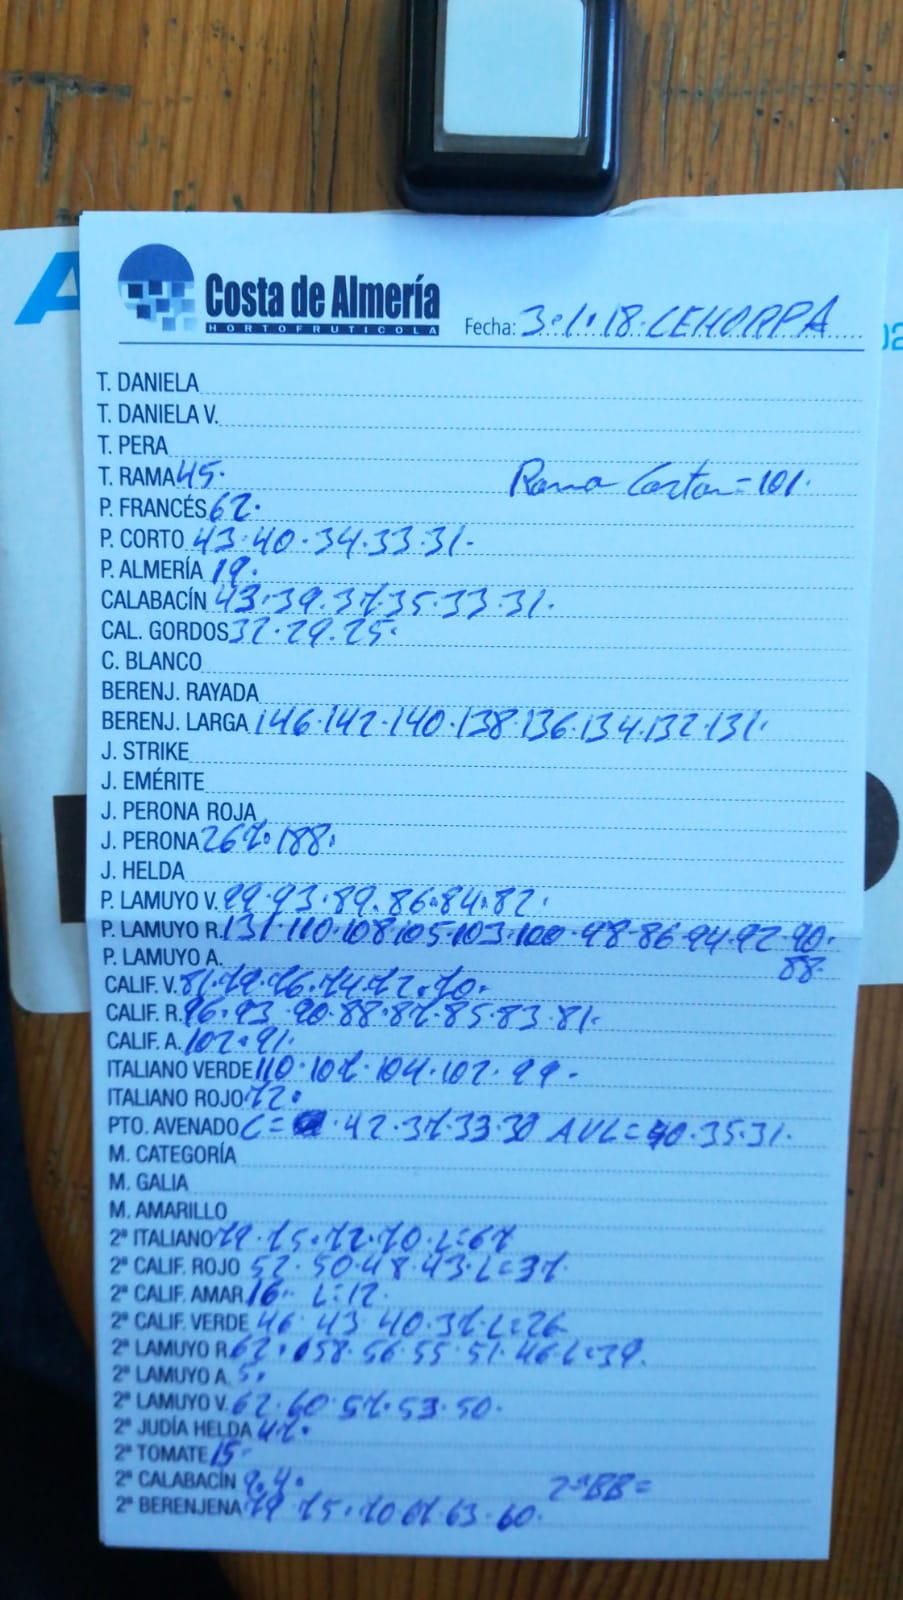 Costa de Almería
HORTOFRUTICOLA
Fecha: 3.1.18. CEHORPA
T. DANIELA
T. DANIELA V.
T. PERA
T. RAMA 45. Rama Corta = 101.
P. FRANCÉS 62.
P. CORTO 43.40.34.33.31.
P. ALMERÍA 19.
CALABACÍN 43.39.37.35.33.31.
CAL. GORDOS 32.29.25.
C. BLANCO
BERENJ. RAYADA
BERENJ. LARGA 146.142.140.138.136.134.132.131.
J. STRIKE
J. EMÉRITE
J. PERONA ROJA
J. PERONA 267.188.
J. HELDA
P. LAMUYO V. 99.93.89.86.84.82.
P. LAMUYO R. 131.110.108.105.103.100.98.86.94.92.90.
P. LAMUYO A. 88.
CALIF. V. 81.79.76.74.72.70.
CALIF. R. 96.93.90.88.87.85.83.81.
CALIF. A. 102.91.
ITALIANO VERDE 110.107.104.102.99.
ITALIANO ROJO 72.
PTO. AVENADO C= .42.37.33.30 AVL=40.35.31.
M. CATEGORÍA
M. GALIA
M. AMARILLO
2ª ITALIANO 79.75.72.70.L=67
2ª CALIF. ROJO 52.50.48.43.L=37.
2ª CALIF. AMAR 16. L=12.
2ª CALIF. VERDE 46.43.40.37.L=26
2ª LAMUYO R. 62.58.56.55.51.46.L=39.
2ª LAMUYO A. 5.
2ª LAMUYO V. 62.60.57.53.50.
2ª JUDÍA HELDA 47.
2ª TOMATE 15
2ª CALABACÍN 9.4. 2ªBB=
2ª BERENJENA 79.75.70.67.63.60.